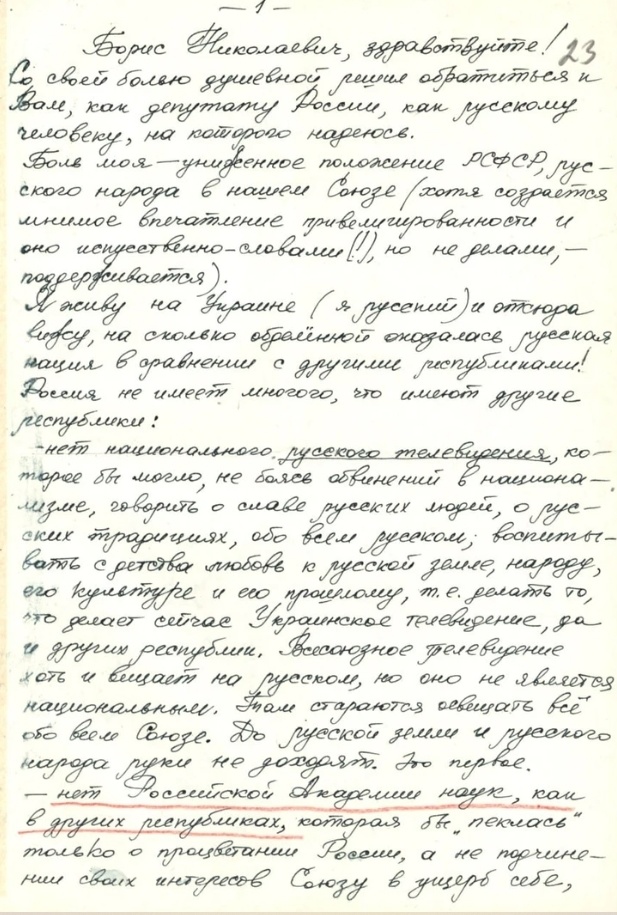 — 1 —
Борис Николаевич, здравствуйте! 23
Со своей болью душевной решил обратиться к
Вам, как депутату России, как русскому
человеку, на которого надеюсь.
Боль моя — униженное положение РСФСР, рус-
ского народа в нашем Союзе (хотя создается
мнимое впечатление привелигированности и
оно искуственно-словами (!), но не делами, —
поддерживается).
Я живу на Украине (я русский) и отсюда
вижу, на сколько обделённой оказалась русская
нация в сравнении с другими республиками!
Россия не имеет многого, что имеют другие
республики:
-нет национального русского телевидения, ко-
торое бы могло, не боясь обвинений в национа-
лизме, говорить о славе русских людей, о рус-
ских традициях, обо всем русском; воспиты-
вать с детства любовь к русской земле, народу,
его культуре и его прошлому, т.е. делать то,
что делает сейчас Украинское телевидение, да
и других республик. Всесоюзное телевидение
хоть и вещает на русском, но оно не является
национальным. Там стараются освещать всё
обо всем Союзе. До русской земли и русского
народа руки не доходят. Это первое.
— нет Российской Академии наук, как
в других республиках, которая бы „пеклась“
только о процветании России, а не подчине-
нии своих интересов Союзу в ущерб себе,